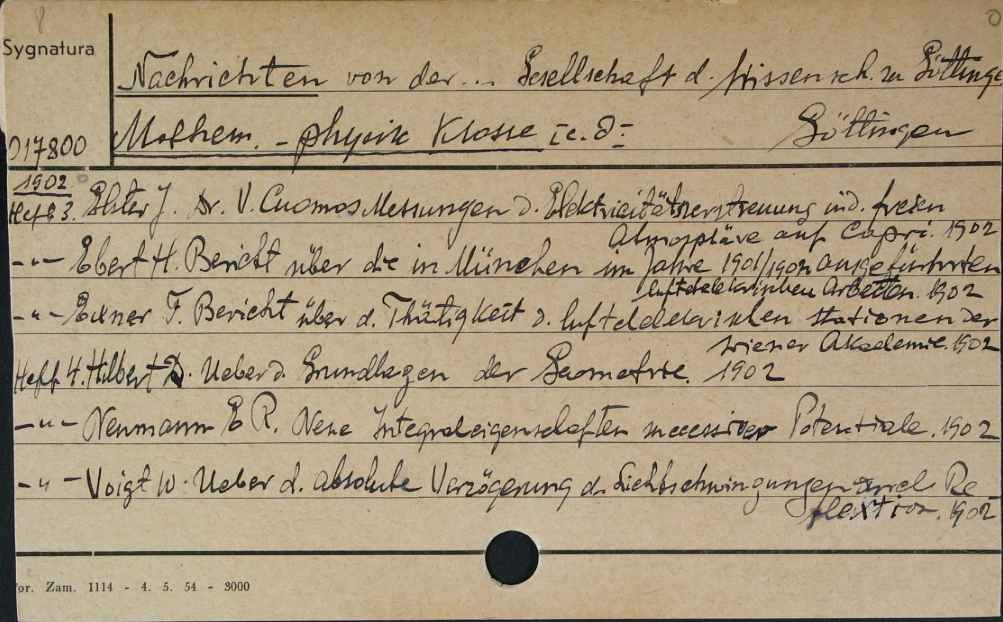 Sygnatura
Nachrichten von der ... Gesellschaft d. Wissensch. zu Göttinge
017800 Mathem. - physik Klasse Göttingen
1902
Heft 3. Elster J. Dr. V. Cuomos Messungen d. Elektricitätszerstreuung in d. freien
Atmosphäre auf Capri. 1902
-"- Ebert H. Bericht über die in München im Jahre 1901/1902 ausgeführten
luftelektrischen Arbeiten. 1902
-"- Exner F. Bericht über d. Thätigkeit d. luftelelekrischen Stationen der
Wiener Akademie. 1902
Heft 4. Hilbert D. Ueber d. Grundlagen der Geometrie. 1902
-"- Neumann E R. Neue Integraleigenschaften successiver Potentiale. 1902
-"- Voigt W. Ueber d. absolute Verzögerung d. Lichtschwingungen durch Re-
flextion. 1902
or. Zam. 1114 - 4. 5. 54 - 3000